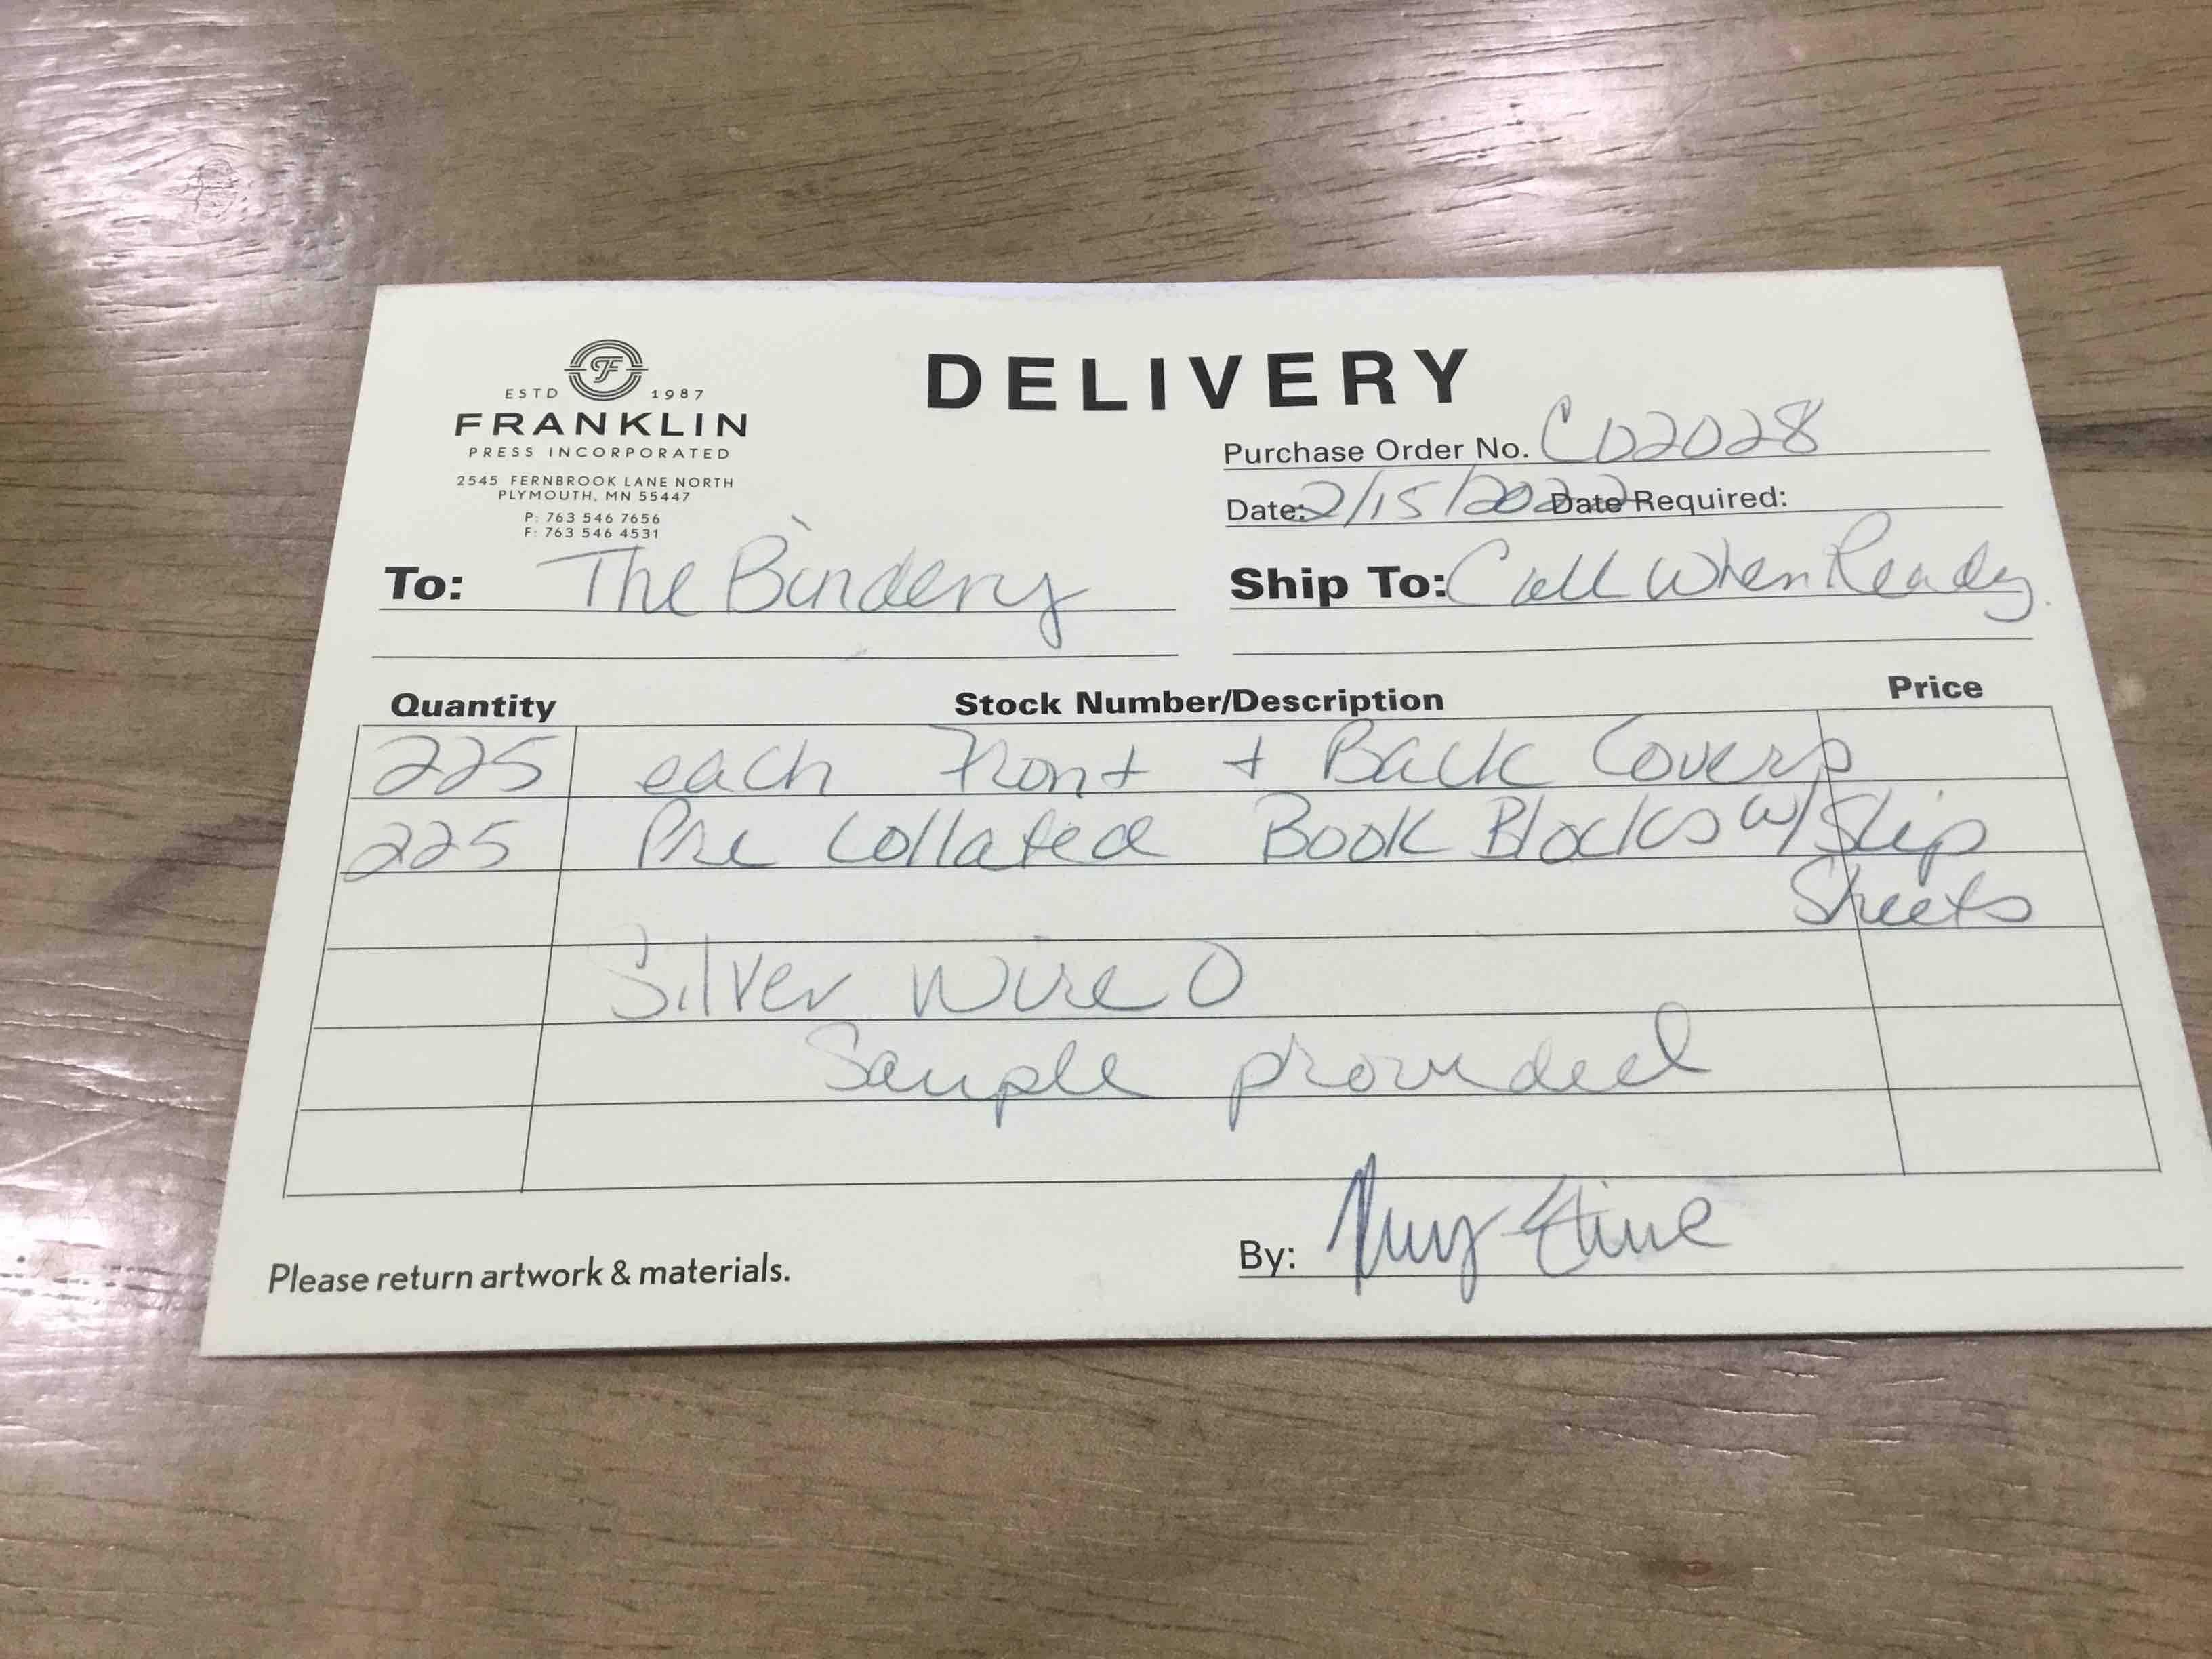 ESTD 1987
FRANKLIN
PRESS INCORPORATED
2545 FERNBROOK LANE NORTH
PLYMOUTH, MN 55447
P: 763 546 7656
F: 763 546 4531
DELIVERY
Purchase Order No. CD2028
Date: 2/15/2022 Date Required:
To: The Bindery
Ship To: Call When Ready.
Quantity Stock Number/Description Price
225 each Front + Back Covers
225 Pre Collated Book Blocks w/ Slip
Sheets
Silver Wire O
Sample provided
Please return artwork & materials.
By: